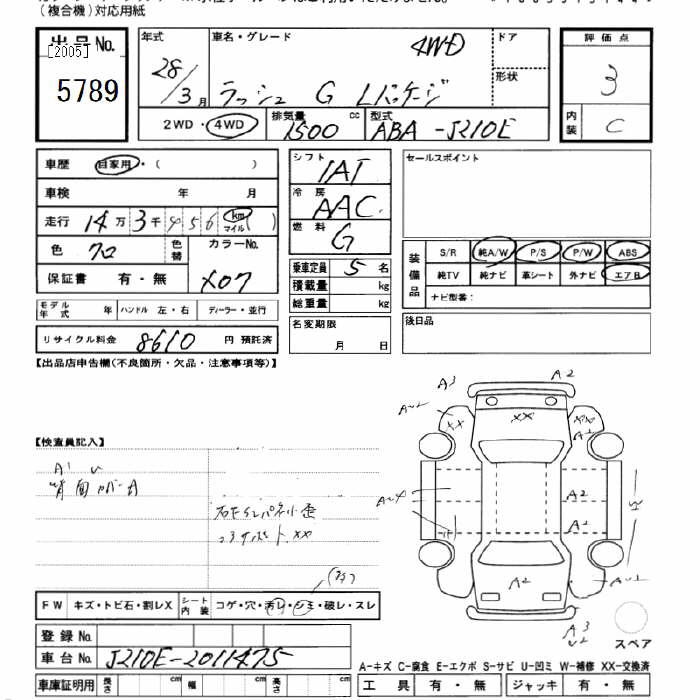 (複合機)対応用紙
出品No.
[2005]
5789
年式 28/3月
車名・グレード 4WD
ラッシュ G Lパッケージ
ドア
形状
評価点 3
内装 C
2WD・4WD 排気量 1500 cc 型式 ABA-J210E
車歴 自家用・( )
車検 年 月
走行 14万3千456 km マイル ( )
色 クロ 色替 カラーNo. X07
保証書 有・無
モデル年式 年 ハンドル 左・右 ディーラー・並行
リサイクル料金 8610 円 預託済
シフト IAT
冷房 AAC
燃料 G
乗車定員 5 名
積載量 kg
総重量 kg
名変期限 月 日
セールスポイント
装備品 S/R 純A/W P/S P/W ABS
純TV 純ナビ 革シート 外ナビ エアB
ナビ型番:
後日品
【出品店申告欄(不良箇所・欠品・注意事項等)】
【検査員記入】
A3 A2
XX XX
A2
A2
A2
A2
A3
スペア
FW キズ・トビ石・割レX シート内装 コゲ・穴・汚レ・シミ・破レ・スレ
登録No.
車台No. J210E-2011475
車庫証明用 長さ cm 幅 cm 高さ cm
A-キズ C-腐食 E-エクボ S-サビ U-凹ミ W-補修 XX-交換済
工具 有・無 ジャッキ 有・無